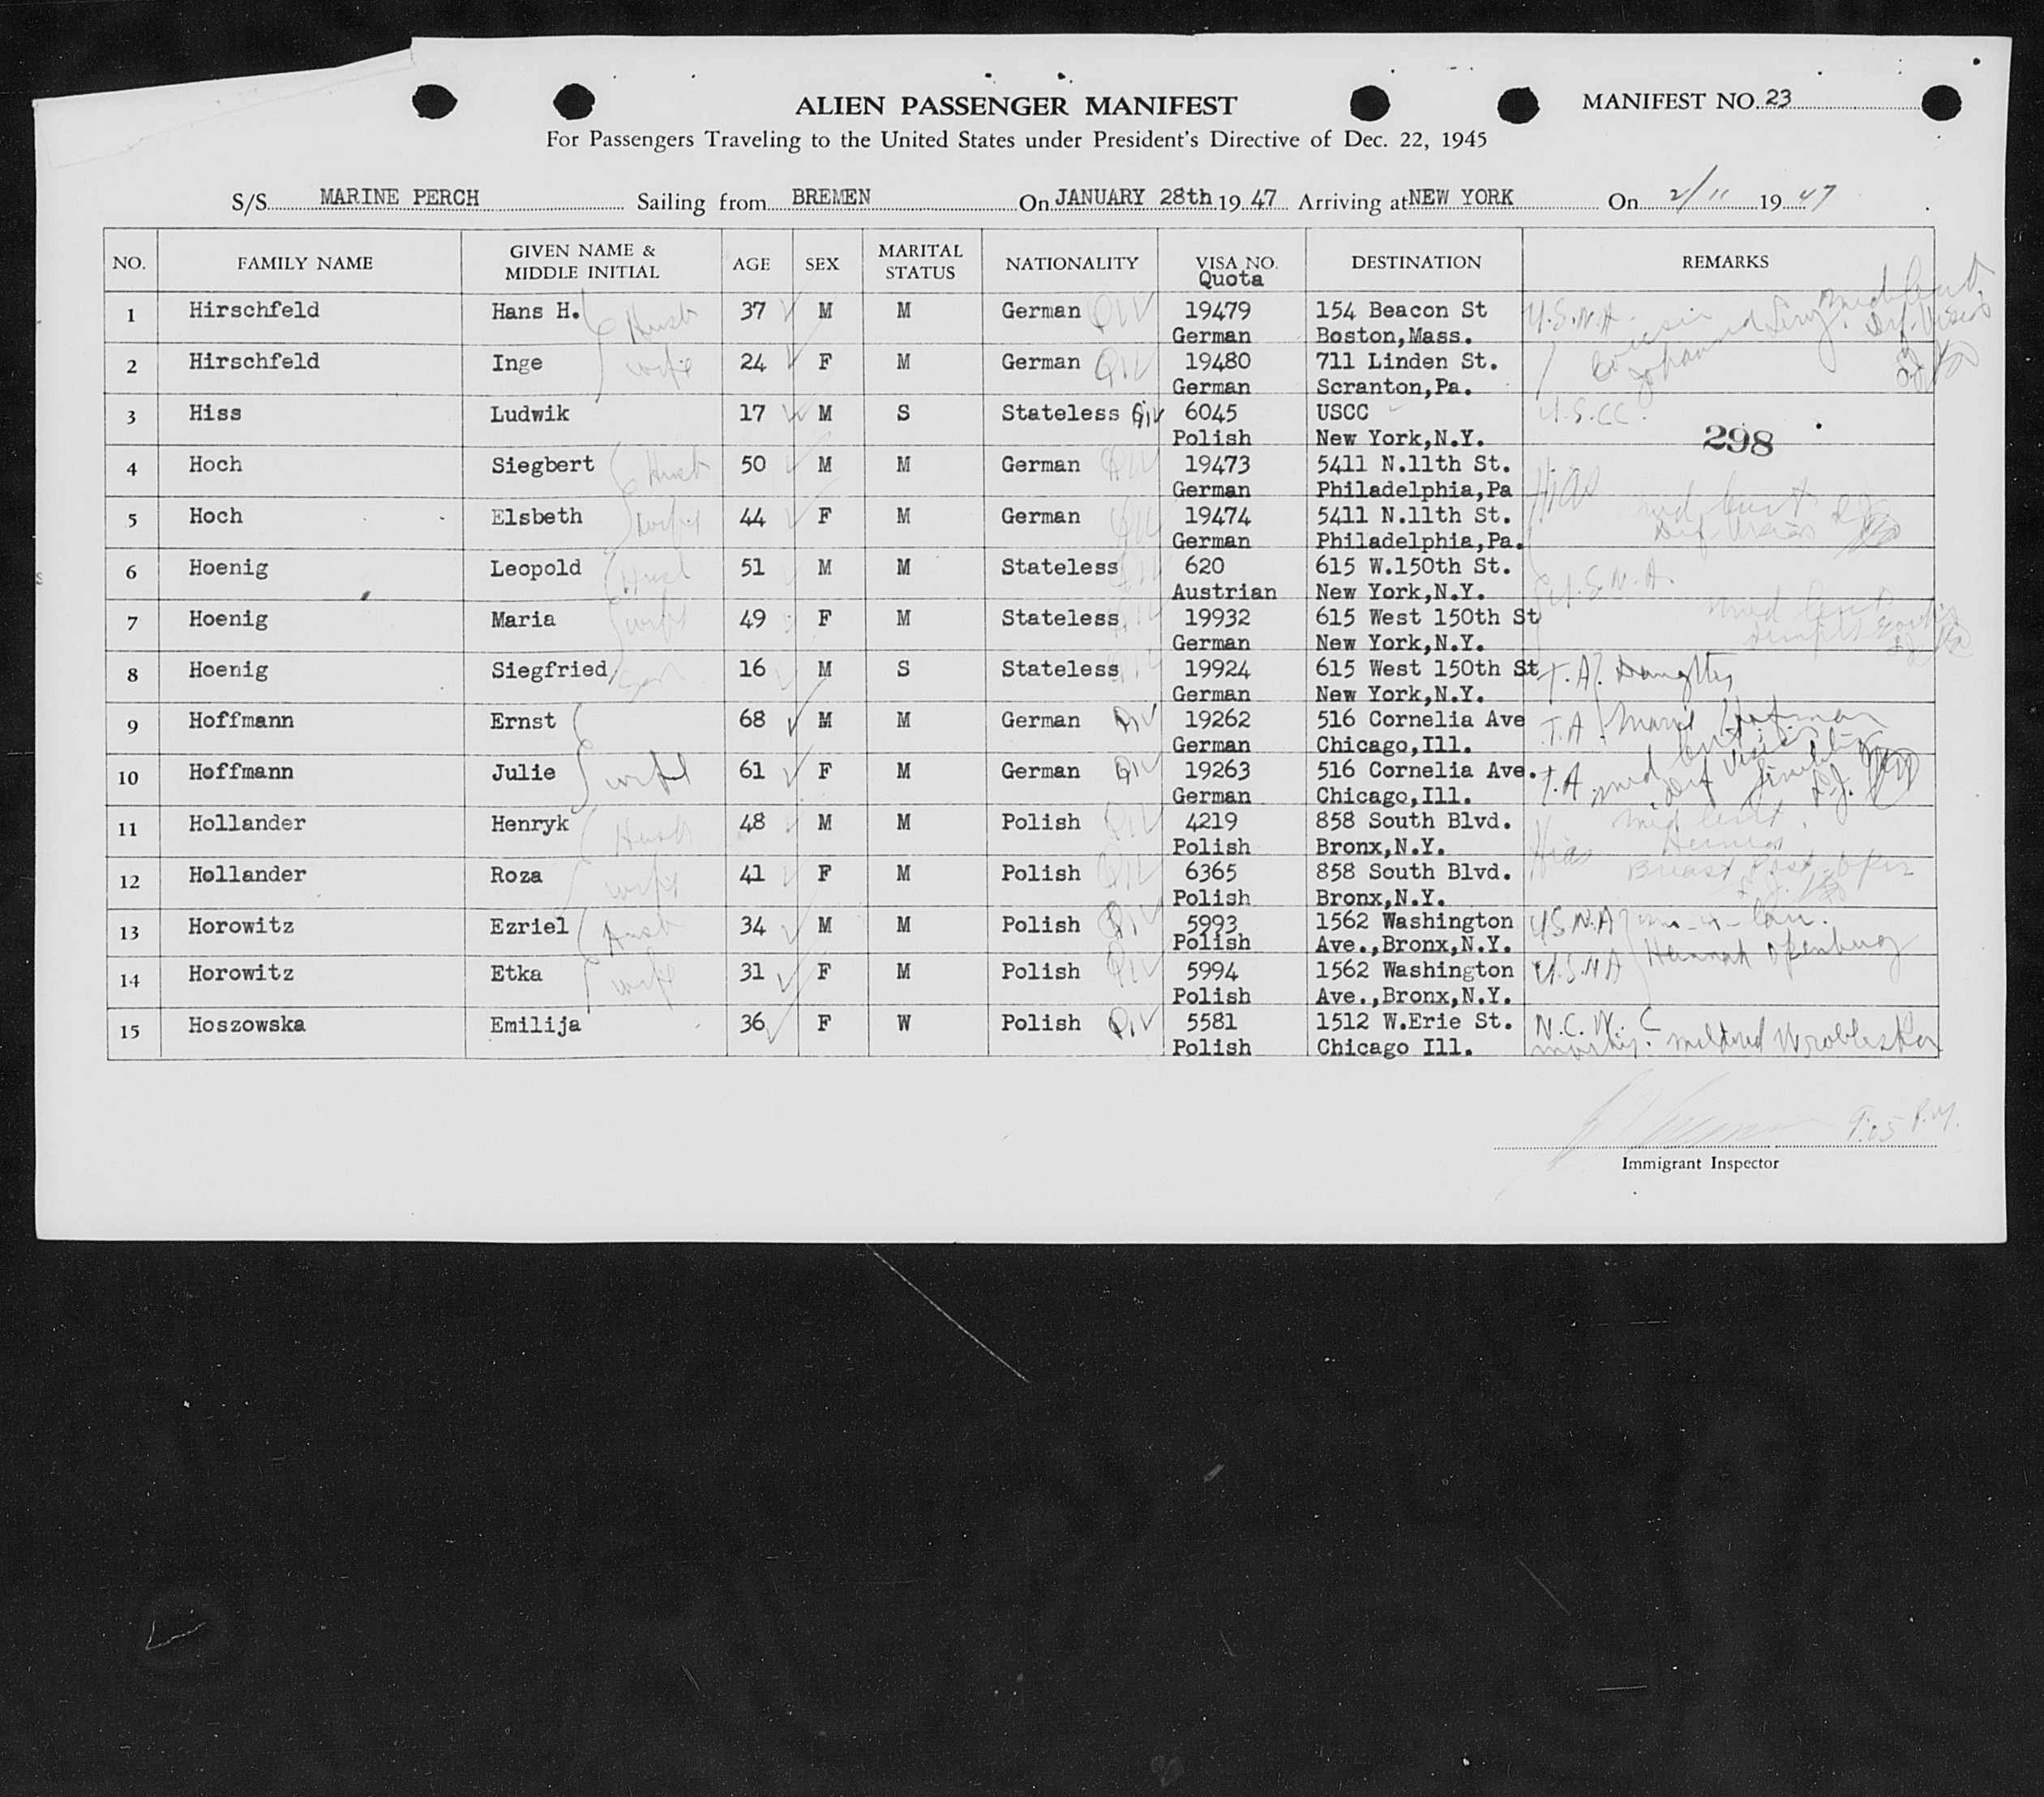 ALIEN PASSENGER MANIFEST
MANIFEST NO. 23
For Passengers Traveling to the United States under President's Directive of Dec. 22, 1945
S/S MARINE PERCH Sailing from BREMEN On JANUARY 28th 19 47 Arriving at NEW YORK On 2/11 19 47
NO. FAMILY NAME GIVEN NAME & MIDDLE INITIAL AGE SEX MARITAL STATUS NATIONALITY VISA NO. Quota DESTINATION REMARKS
1 Hirschfeld Hans H. Husb 37 M M German QIV 19479 154 Beacon St U.S.N.A. Cousin med cert
German Boston,Mass. Def. Vision
2 Hirschfeld Inge wife 24 F M German QIV 19480 711 Linden St.
German Scranton,Pa.
3 Hiss Ludwik 17 M S Stateless QIV 6045 USCC U.S.CC.
Polish New York,N.Y. 298
4 Hoch Siegbert Husb 50 M M German QIV 19473 5411 N.11th St. Hias
German Philadelphia,Pa
5 Hoch Elsbeth wife 44 F M German QIV 19474 5411 N.11th St. med cert
German Philadelphia,Pa. Def Vision
6 Hoenig Leopold Husb 51 M M Stateless QIV 620 615 W.150th St. U.S.N.A.
Austrian New York,N.Y.
7 Hoenig Maria wife 49 F M Stateless QIV 19932 615 West 150th St med cert
German New York,N.Y.
8 Hoenig Siegfried son 16 M S Stateless QIV 19924 615 West 150th St T.A. Daughter
German New York,N.Y.
9 Hoffmann Ernst 68 M M German QIV 19262 516 Cornelia Ave T.A.
German Chicago,Ill.
10 Hoffmann Julie wife 61 F M German QIV 19263 516 Cornelia Ave. T.A. med cert
German Chicago,Ill. Def Vision
11 Hollander Henryk Husb 48 M M Polish QIV 4219 858 South Blvd. med cert
Polish Bronx,N.Y. Hias Hernia
12 Hollander Roza wife 41 F M Polish QIV 6365 858 South Blvd. Breast Post-Oper
Polish Bronx,N.Y.
13 Horowitz Ezriel Husb 34 M M Polish QIV 5993 1562 Washington U.S.N.A -in-law.
Polish Ave.,Bronx,N.Y. Hannah
14 Horowitz Etka wife 31 F M Polish QIV 5994 1562 Washington U.S.N.A
Polish Ave.,Bronx,N.Y.
15 Hoszowska Emilija 36 F W Polish QIV 5581 1512 W.Erie St. N.C.W.C
Polish Chicago Ill. Mildred Wrobleska
9:05 P.M.
Immigrant Inspector